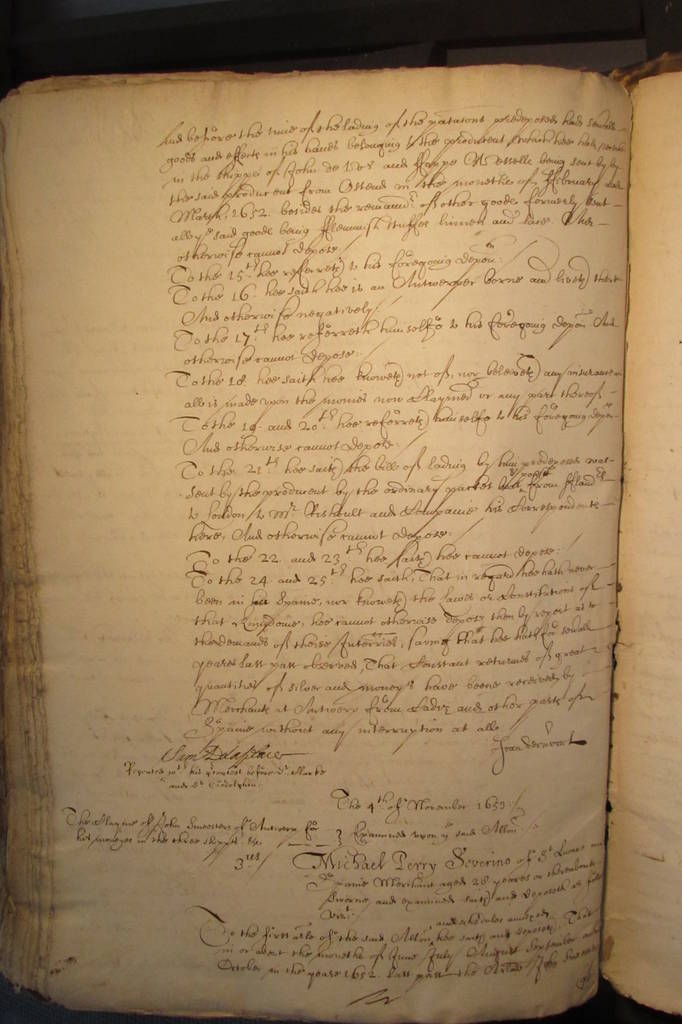 And before the time of the lading of the patacons predeposed had severall
goods and effects in his hands belonging to the producent which hee
in the shipps of John de Vos and being sent by
the said producent from Ostend in the moneths of February and
March 1652. besides the remaind.r of other goods formerly sent
all y.e said goods being fflemmish stuffes linnen and lace. And
otherwise cannot depose
To the 15.th hee referreth to his foregoing depon:
To the 16. hee saith hee is an Antwerper borne and liveth there
And otherwise negatively
To the 17.th hee referreth himselfe to his foregoing depon And
otherwise cannot depose
To the 18. hee saith hee knoweth not of, nor beleeveth any insurance
all is made upon the monies now claymed or any part thereof
To the 19. and 20.th hee referreth himselfe to his foregoing depon
And otherwise cannot depose.
To the 21.th hee saith the bills of lading by him predeposed were
sent by the producent by the ordinary packet post from fland.rs
to London to M.r Richault and Companie his Correspondents
here, And otherwise cannot depose:
To the 22 and 23.th hee saith hee cannot depose:
To the 24 and 25.th hee saith, That in regard hee hath never
been in Spaine, nor knoweth the lawes or Constitutions of
that Kingdome, hee cannot otherwise depose then by report as to
the demands of theise Interries, saving that hee hath for severall
yeares last past observed, That Constant returnes of great
quantities of silver and moneys have beene received by
Merchants at Antwerp from Cadiz and other parts of
Spaine without any interruption at all
Repeated w.th his before d.r Clarke
and d.r Godolphin.
The 4.th of November 1653:/
The Clayme of John of Antwerp for
his moneyes in the three shipps. &c.
Examined upon y.e said Allon.
3.us
Michael Perry Severino of S.t Lucar in
Spaine Merchant aged 28 yeares or thereabouts
sworne and examined saith and deposeth as follo
viz.t
and schedules annexed
To the first arle of the said Allon hee saith and deposeth That
in or about the moneths of June July August September and
October in the yeare 1652. last past the Arlate John